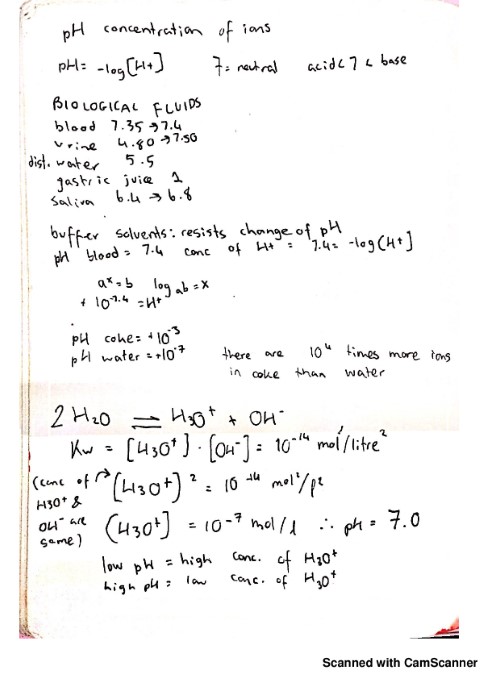 pH concentration of ions
pH = -log[H+] 7 = neutral acid < 7 < base
BIOLOGICAL FLUIDS
blood 7.35 → 7.4
urine 4.80 → 7.50
dist. water 5.5
gastric juice 1
saliva 6.4 → 6.8
buffer solvents: resists change of pH
pH blood = 7.4 conc of H+ = 7.4 = -log(H+]
aˣ = b log ab = x
+ 10⁻⁷·⁴ = H+
pH coke = +10⁻³
pH water = +10⁻⁷ there are 10⁴ times more ions
in coke than water
2 H₂O ⇌ H₃O⁺ + OH⁻
Kw = [H3O⁺] · [OH⁻] = 10⁻¹⁴ mol²/litre²
(conc of → (H3O⁺)² = 10⁻¹⁴ mol²/l²
H3O⁺ &
OH⁻ are (H3O⁺] = 10⁻⁷ mol/l ∴ pH = 7.0
same)
low pH = high conc. of H₃O⁺
high pH = low conc. of H₃O⁺
Scanned with CamScanner